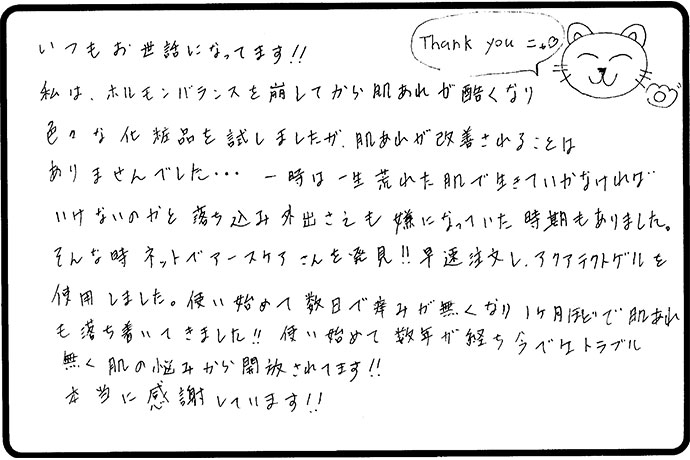 Thank you
いつもお世話になってます!!
私は、ホルモンバランスを崩してから肌あれが酷くなり
色々な化粧品を試しましたが、肌あれが改善されることは
ありませんでした・・・ 一時は一生荒れた肌で生きていかなければ
いけないのかと落ち込み外出さえも嫌になっていた時期もありました。
そんな時ネットでアースケアさんを発見!!早速注文し、アクアテクトゲルを
使用しました。使い始めて数日で痒みが無くなり1ヶ月ほどで肌あれ
も落ち着いてきました!! 使い始めて数年が経ち今ではトラブル
無く肌の悩みから開放されてます!!
本当に感謝しています!!